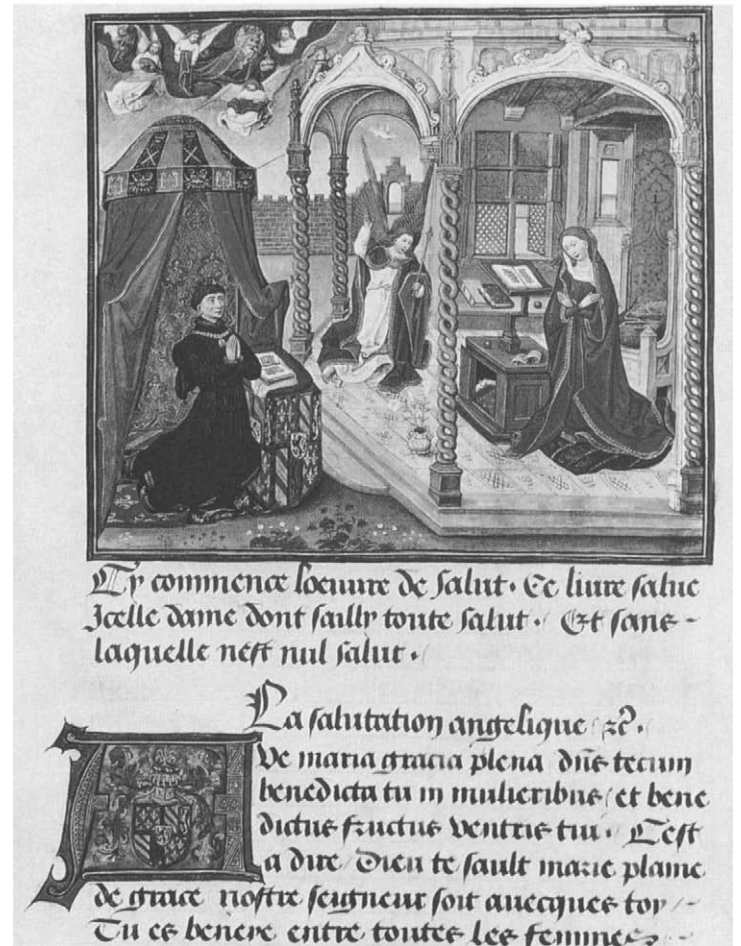 Cy commence loeuure de salut. Ce liure salue
Jcelle dame dont sailly toute salut. Et sans -
laquelle nest nul salut.
La salutation angelique ⁊c̃.
Ave maria gracia plena dñs tecum
benedicta tu in mulieribus / et bene
dictus fructus ventris tui. Cest
a dire / Dieu te sault marie plaine
de grace nostre seigneur soit auecques toy
Tu es beneye entre toutes les femmes